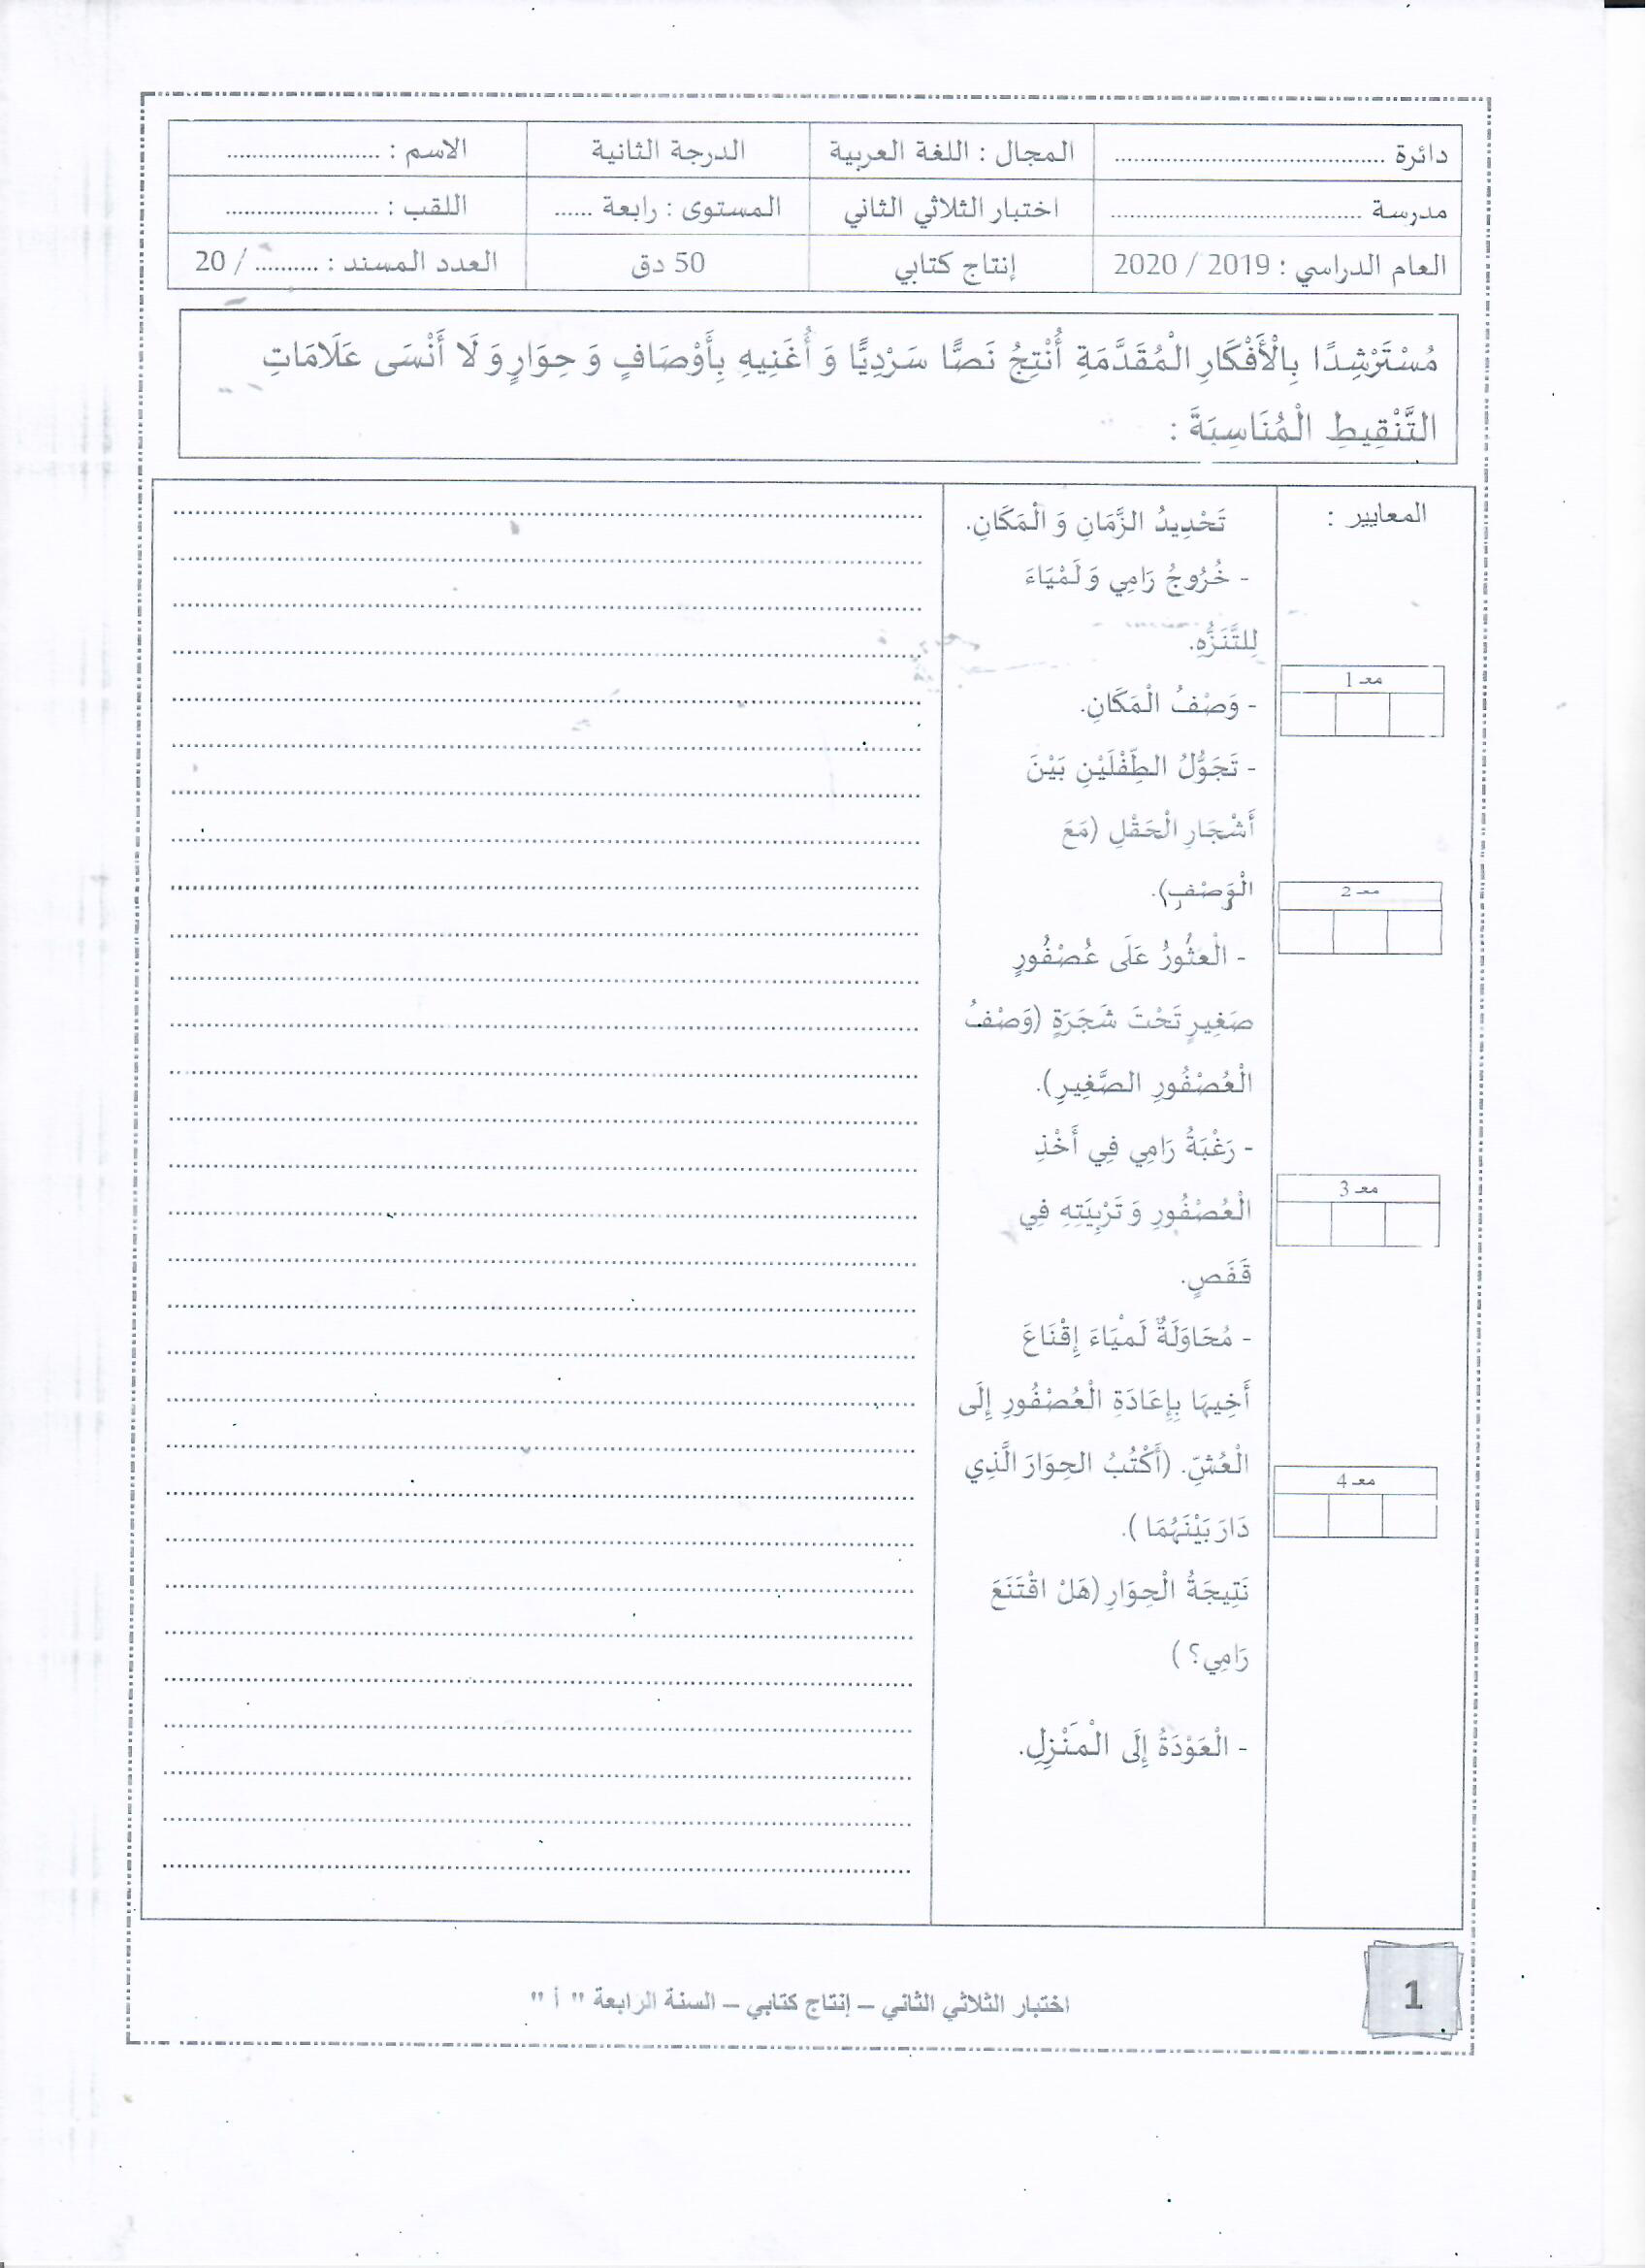 دائرة ................................... المجال : اللغة العربية الدرجة الثانية الاسم : ....................
مدرسة ................................ اختبار الثلاثي الثاني المستوى : رابعة ...... اللقب : ....................
العام الدراسي : 2019 / 2020 إنتاج كتابي 50 دق العدد المسند : .......... / 20
مُسْتَرْشِدًا بِالْأَفْكَارِ الْمُقَدَّمَةِ أُنْتِجُ نَصًّا سَرْدِيًّا وَ أُغَنِيهِ بِأَوْصَافٍ وَ حِوَارٍ وَ لَا أَنْسَى عَلَامَاتِ
التَّنْقِيطِ الْمُنَاسِبَةَ :
المعايير :
معـ 1
معـ 2
معـ 3
معـ 4
تَحْدِيدُ الزَّمَانِ وَ الْمَكَانِ.
- خُرُوجُ رَامِي وَ لَمْيَاءَ
لِلتَّنَزُّهِ.
- وَصْفُ الْمَكَانِ.
- تَجَوُّلُ الطِّفْلَيْنِ بَيْنَ
أَشْجَارِ الْحَقْلِ (مَعَ
الْوَصْفِ).
- الْعثُورُ عَلَى عُصْفُورٍ
صَغِيرٍ تَحْتَ شَجَرَةٍ (وَصْفُ
الْعُصْفُورِ الصَّغِيرِ).
- رَغْبَةُ رَامِي فِي أَخْذِ
الْعُصْفُورِ وَ تَرْبِيَتِهِ فِي
قَفَصٍ.
- مُحَاوَلَةٌ لَمْيَاءَ إِقْنَاعَ
أَخِيهَا بِإِعَادَةِ الْعُصْفُورِ إِلَى
الْعُشِّ. (أَكْتُبُ الحِوَارَ الَّذِي
دَارَ بَيْنَهُمَا ).
نَتِيجَةُ الْحِوَارِ (هَلْ اقْتَنَعَ
رَامِي؟ )
- الْعَوْدَةُ إِلَى الْمَنْزِلِ.
اختبار الثلاثي الثاني – إنتاج كتابي – السنة الرابعة " أ "
1